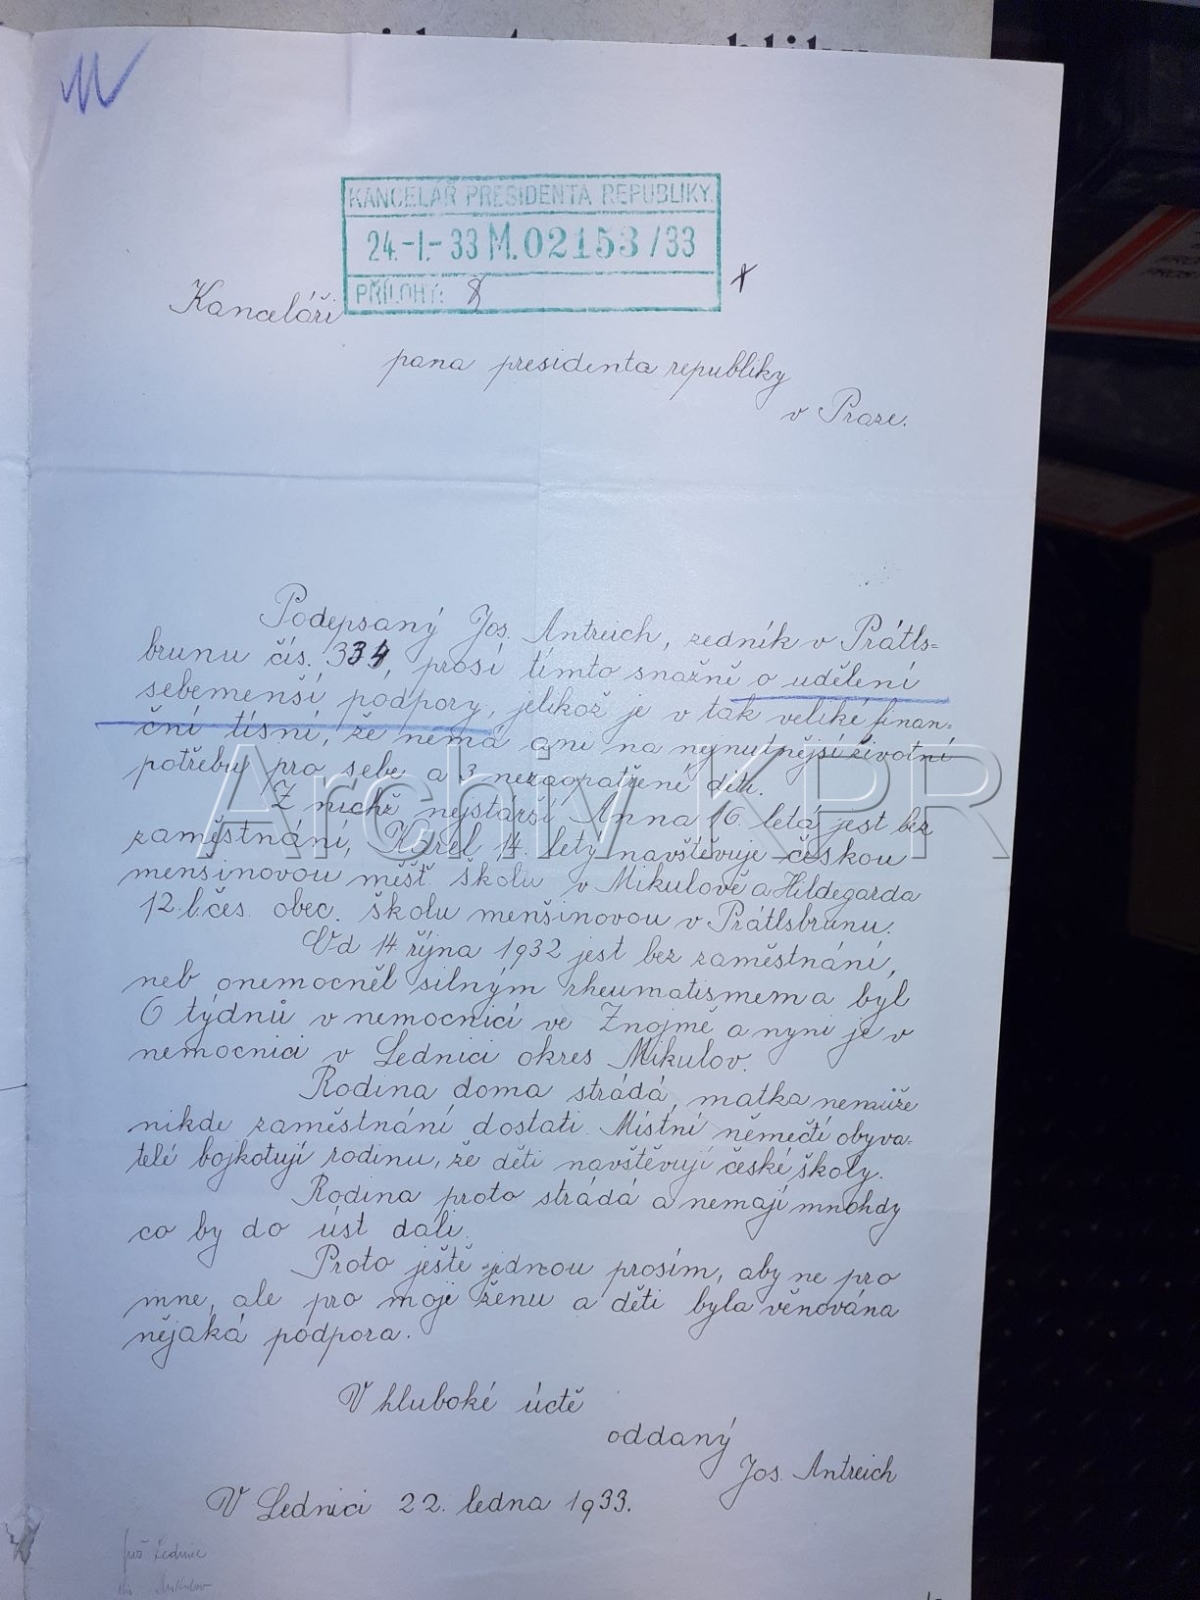 KANCELÁŘ PRESIDENTA REPUBLIKY.
24.-I.-33 M.02153/33
PŘÍLOHY:
Kanceláři
pana presidenta republiky
v Praze.
Podepsaný Jos. Antreich, zedník v Prátls=
brunu čís. 334, prosí tímto snažně o udělení
sebemenší podpory, jelikož je v tak veliké finan=
ční tísni, že nemá ani na nejnutnější životní
potřebu pro sebe a 3 nezaopatřené děti.
Z nichž nejstárší Anna 16 letá jest bez
zaměstnání, Karel 14. letý navštěvuje českou
menšinovou měšť školu v Mikulově a Hildegarda
12.l.čes. obec. školu menšinovou v Prátlsbrunu.
Od 14. října 1932 jest bez zaměstnání,
neb onemocněl silným rheumatismem a byl
6 týdnů v nemocnici ve Znojmě a nyni je v
nemocnici v Lednici okres Mikulov.
Rodina doma strádá, matka nemůže
nikde zaměstnání dostati. Místní němečtí obyva=
telé bojkotují rodinu, že děti navštěvují české školy.
Rodina proto strádá a nemají mnohdy
co by do úst dali.
Proto ještě jednou prosím, aby ne pro
mne, ale pro moje ženu a děti byla věnována
nějaká podpora.
V hluboké úctě
oddaný
Jos. Antreich
V Lednici 22. ledna 1933.
Lednice
Mikulov
Archiv KPR